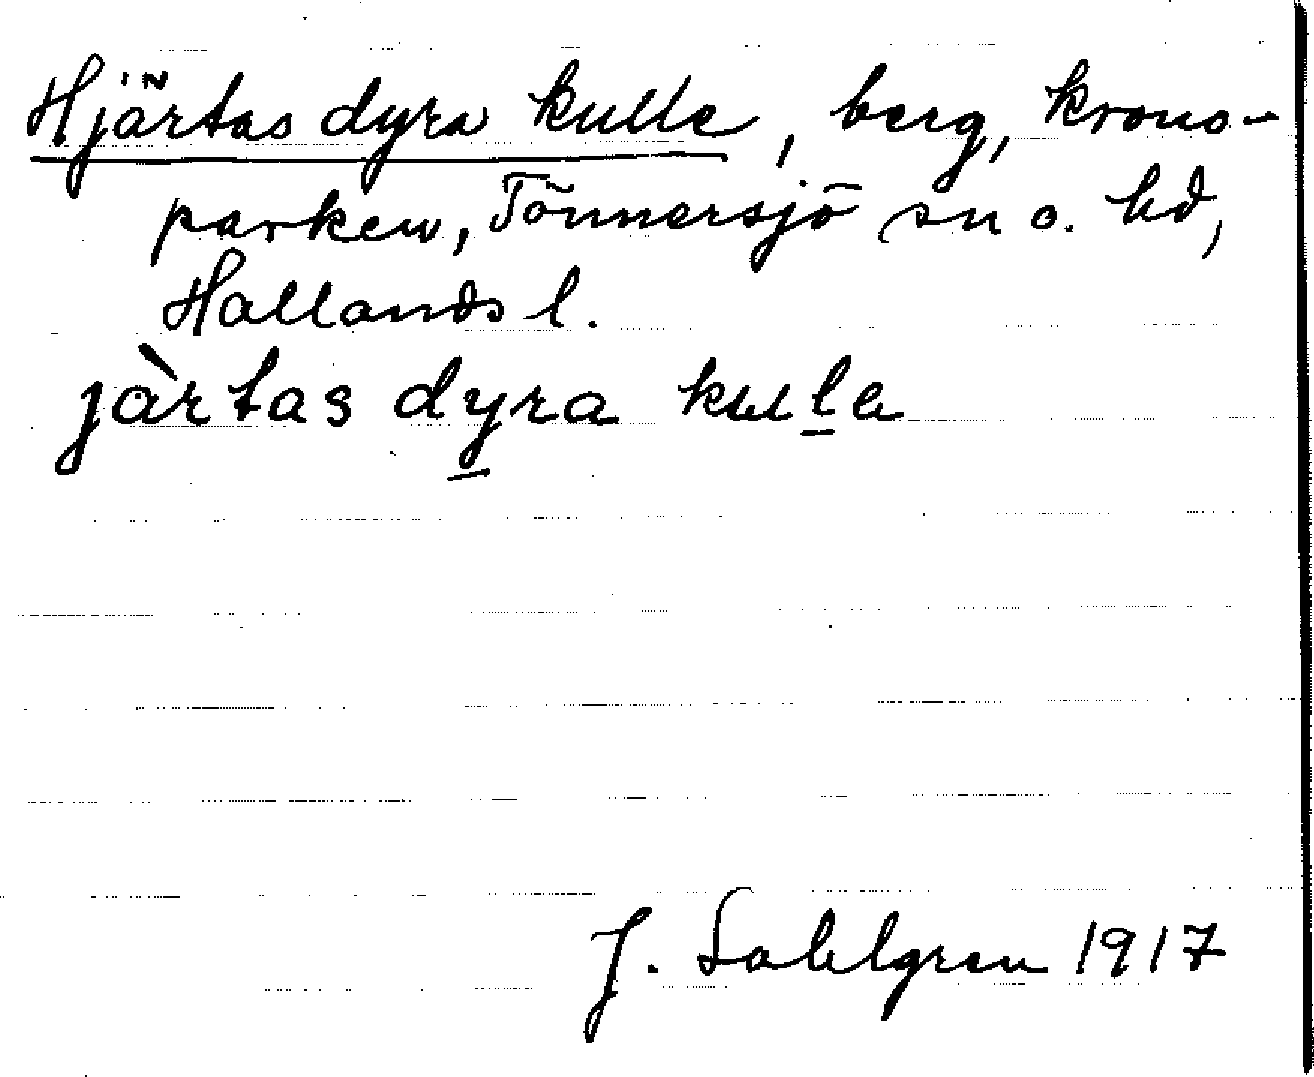 Hjärtas dyra kulle, berg, krono-
parken, Tönnersjö sn o. hd,
Hallands l.
jàrtas dyra kula
J. Sahlgren 1917